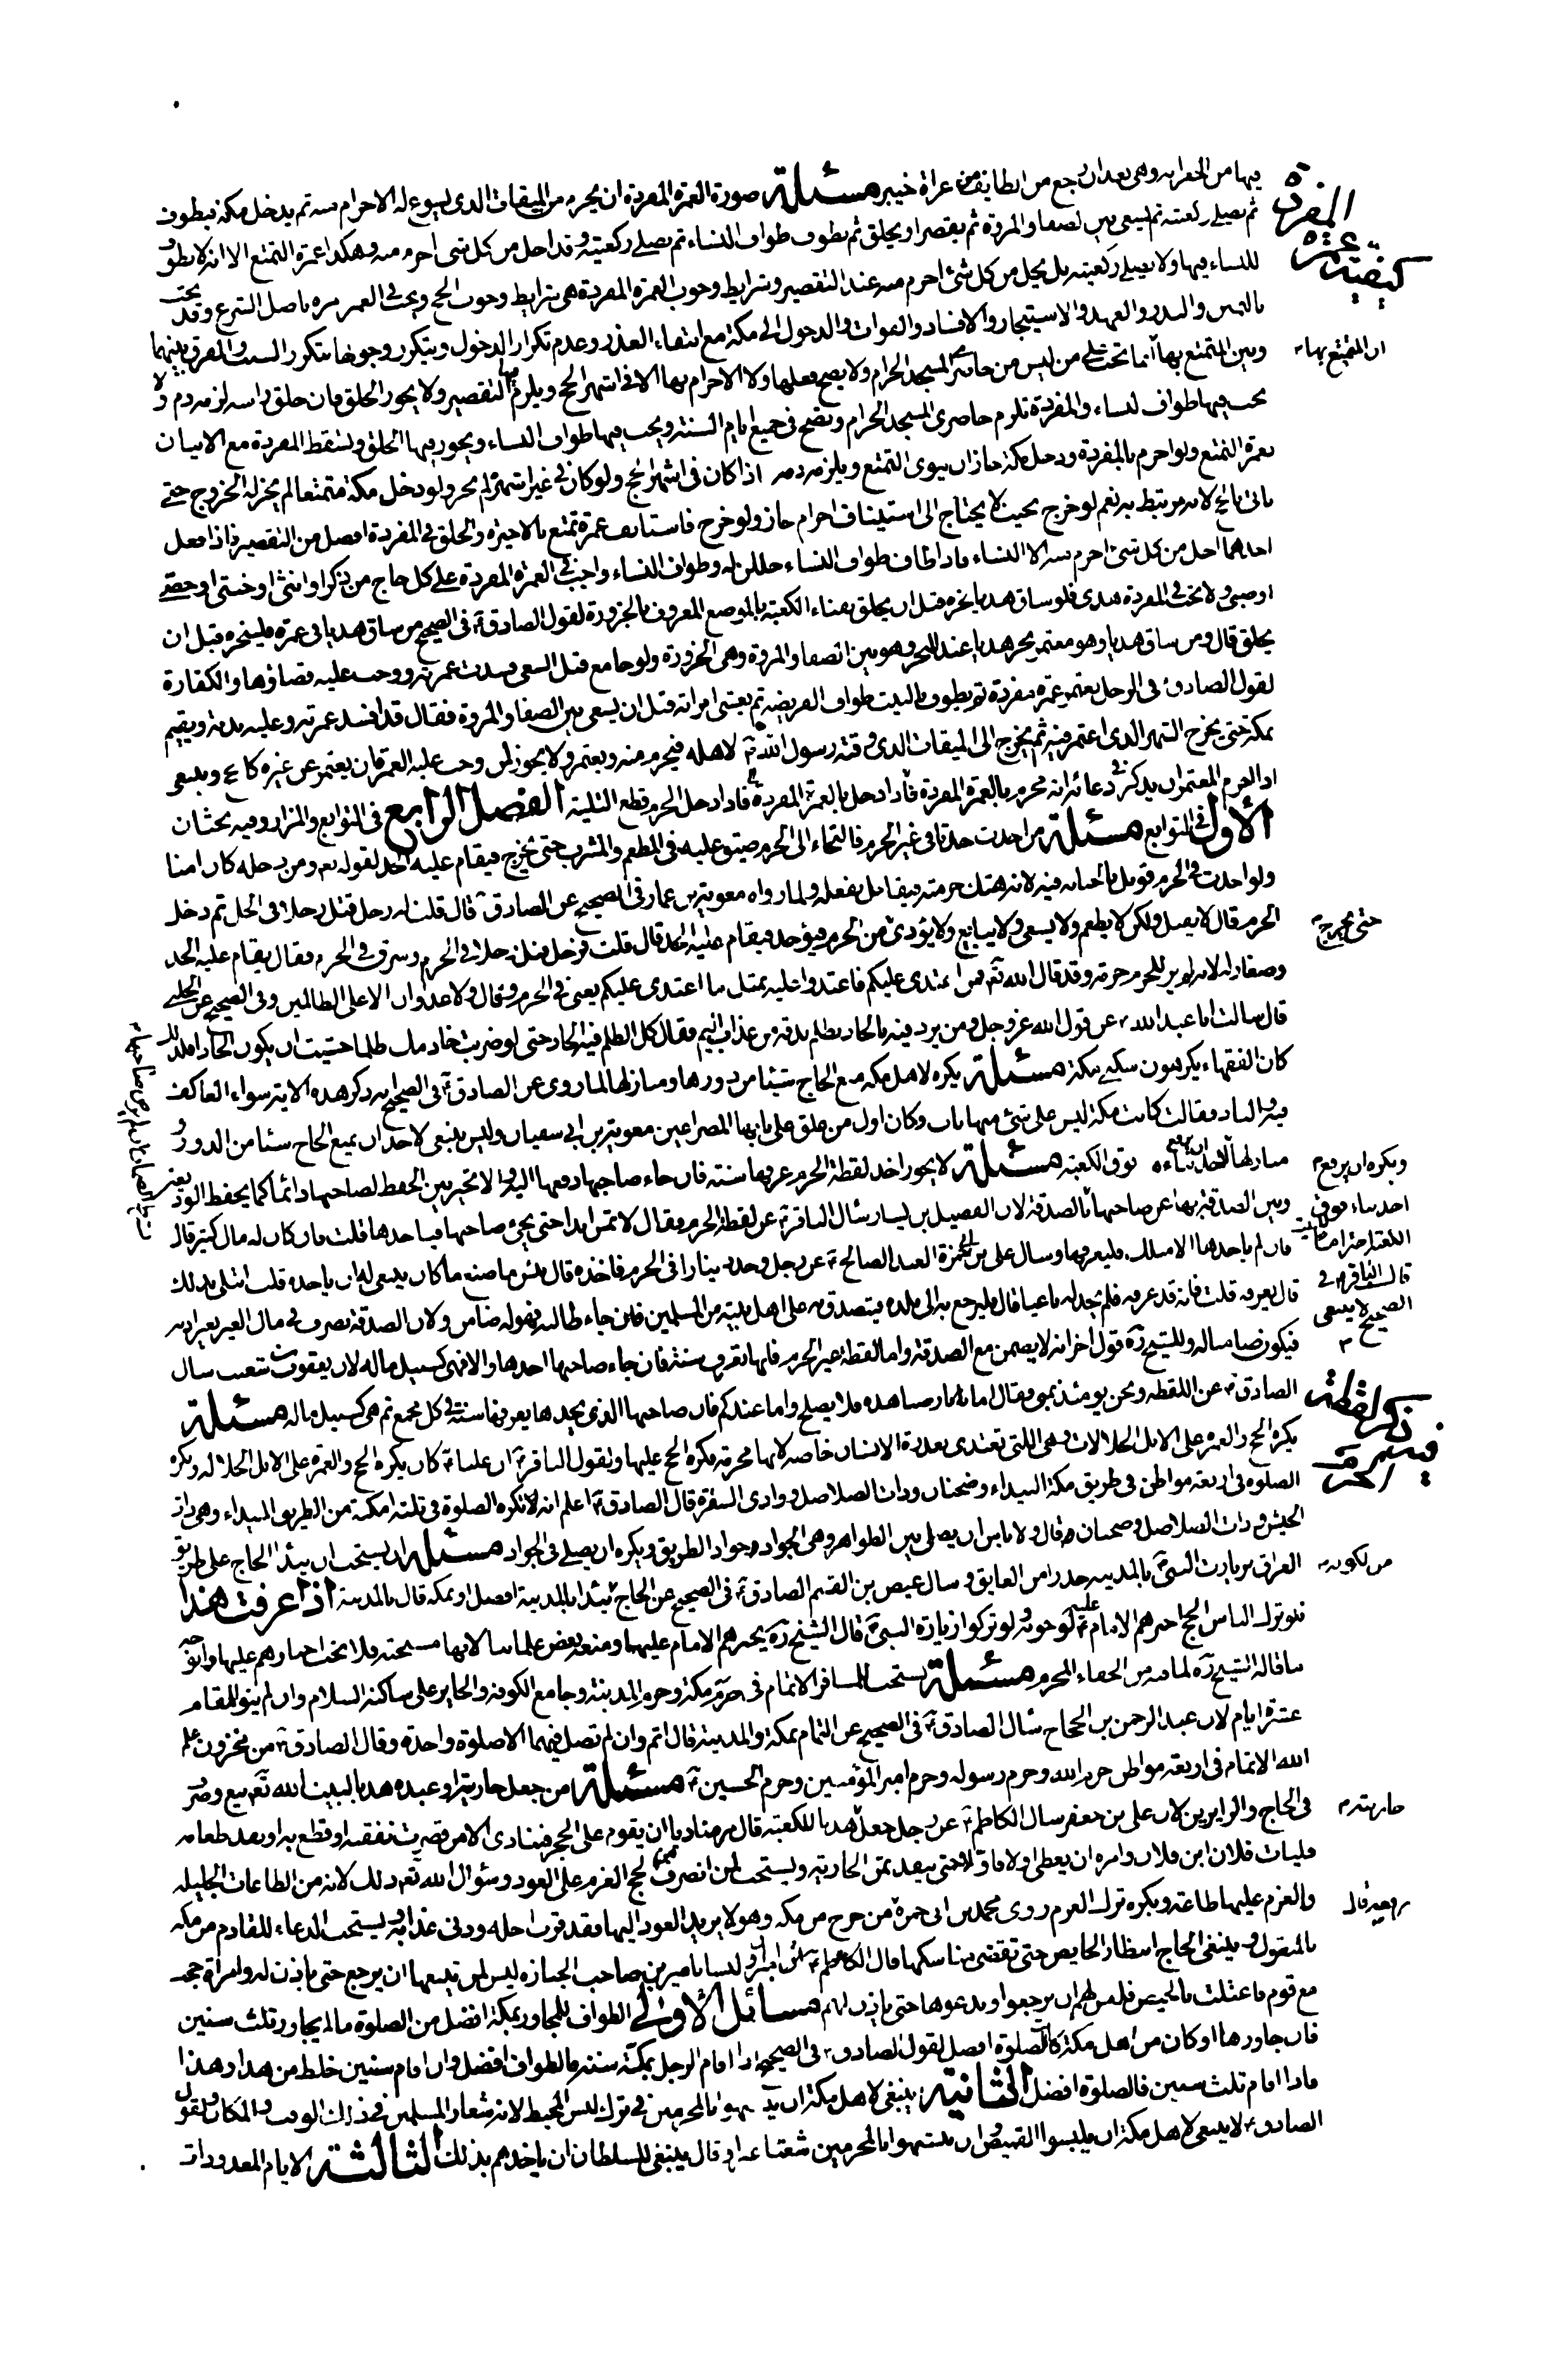 فيها من الجعرانه وهى بعد ان رجع من الطايف من غزاة خيبر مسئلة صورة العمرة المفردة ان يحرم من الميقات الذى يسوغ له الاحرام منه ثم يدخل مكة فيطوف
ثم يصلى ركعتيه ثم يسعى بين الصفا والمروة ثم يقصر او يحلق ثم يطوف طواف النساء ثم يصلى ركعتيه وقد احل من كل شىء احرم منه وهكذا عمرة التمتع الا انه لا يطوف
للنساء فيها ولا يصلى ركعتيه بل يحل من كل شىء احرم منه عند التقصير وشرايط وجوب العمرة المفردة هى شرايط وجوب الحج ويجب فى العمر مرة باصل الشرع وقد يجب
بالنذر والعهد والاستيجار والافساد والفوات والدخول الى مكة مع انتفاء العذر وعدم تكرار الدخول ويتكرر وجوبها بتكرر السبب والفرق بينهما
وبين المتمتع بها انما تجب على من ليس من حاضرى المسجد الحرام ولا يصح فعلها ولا الاحرام بها الا فى اشهر الحج ويلزم فيها التقصير ولا يجوز الحلق فان حلق راسه لزمه دم ولا
يجب فيها طواف النساء والمفردة تلزم حاضرى المسجد الحرام وتصح فى جميع ايام السنة ويجب فيها طواف النساء ويجوز فيها الحلق وتسقط المفردة مع الاتيان
بعمرة التمتع ولو احرم بالمفردة ودخل مكة جاز ان ينوى التمتع ويلزمه دم اذا كان فى اشهر الحج ولو كان فى غير اشهره لم يجز ولو دخل مكة متمتعا لم يجز له الخروج حتى
ياتى بالحج لانه مرتبط به نعم لو خرج بحيث لا يحتاج الى استيناف احرام جاز ولو خرج فاستانف عمرة تمتع بالاخيرة والحلق فى المفردة افضل من التقصير فاذا فعل
احدهما احل من كل شىء احرم منه الا النساء فاذا طاف طواف النساء حللن له وطواف النساء واجب فى العمرة المفردة على كل حاج من ذكر او انثى او خنثى او خصى
او صبى ولا يجب فى المفردة هدى فلو ساق هديا نحره قبل ان يحلق بفناء الكعبة بالموضع المعروف بالحزورة لقول الصادق فى الصحيح من ساق هديا فى عمرة فلينحره قبل ان
يحلق قال ومن ساق هديا وهو معتمر نحر هديه عند المنحر وهو بين الصفا والمروة وهى الحزورة ولو جامع قبل السعى فسدت عمرته ووجب عليه قضاؤها والكفارة
لقول الصادق فى الرجل يعتمر عمرة مفردة ثم يطوف بالبيت طواف الفريضة ثم يغشى امراته قبل ان يسعى بين الصفا والمروة فقال قد افسد عمرته وعليه بدنة ويقيم
بمكة حتى يخرج الشهر الذى اعتمر فيه ثم يخرج الى الميقات الذى وقته رسول الله لاهله فيحرم منه ويعتمر ولا يجوز لمن وجب عليه العمرة ان يعتمر عن غيره كالحج وينبغى
اذا احرم المعتمر ان يذكر فى دعائه انه محرم بالعمرة المفردة فاذا دخل الحرم قطع التلبية الفصل الرابع فى التوابع والمزار وفيه بحثان
الاول فى التوابع مسئلة من احدث حدثا فى غير الحرم فالتجاء الى الحرم ضيق عليه فى المطعم والمشرب حتى يخرج فيقام عليه الحد لقوله تعه ومن دخله كان امنا
ولو احدث فى الحرم قوبل بالجناية فيه لانه هتك حرمته فيقابل بفعله ولما رواه معوية بن عمار فى الصحيح عن الصادق قال قلت له رجل قتل رجلا فى الحل ثم دخل
الحرم قال لا يقتل ولكن لا يطعم ولا يسقى ولا يبايع ولا يؤذى من الحرم فيؤخذ فيقام عليه الحد قال قلت فرجل قتل رجلا فى الحرم وسرق فى الحرم فقال يقام عليه الحد
وصغار له لانه لم ير للحرم حرمة وقد قال الله تعه فمن اعتدى عليكم فاعتدوا عليه بمثل ما اعتدى عليكم يعنى فى الحرم وقال ولا عدوان الا على الظالمين وفى الصحيح عن الحلبى
قال سالت ابا عبد الله عن قول الله عز وجل ومن يرد فيه بالحاد بظلم نذقه من عذاب اليم فقال كل الظلم فيه الحاد حتى لو ضربت خادمك ظلما خشيت ان يكون الحادا فلذلك
كان الفقهاء يكرهون سكنى مكة مسئلة يكره لاهل مكة منع الحاج شيئا من دورها ومنازلها لما روى عن الصادق فى الصحيح انه ذكر هذه الاية سواء العاكف
فيه والباد فقال كانت مكة ليس على شىء منها باب وكان اول من علق على بابها المصراعين معوية بن ابى سفيان وليس ينبغى لاحد ان يمنع الحاج شيئا من الدور و
منازلها لاحد ان يرفع بناءه فوق الكعبة مسئلة لا يجوز اخذ لقطة الحرم عرفها سنة فان جاء صاحبها دفعها اليه والا تخير بين الحفظ لصاحبها دائما كما يحفظ الوديعة
وبين الصدقة بها عن صاحبها بالصدقة لان الفضيل بن يسار سال الباقر عن لقطة الحرم فقال لا تمس ابدا حتى يجىء صاحبها فياخذها قلت فان كان له مال كثير قال
فان لم ياخذها الا مثلك فليعرفها وسال على بن ابى حمزة العبد الصالح عن رجل وجد دينارا فى الحرم فاخذه قال بئس ما صنع ما كان ينبغى له ان ياخذه قلت ابتلى بذلك
قال يعرفه قلت فانه قد عرفه فلم يجد له باغيا قال يرجع به الى بلده فيتصدق به على اهل بيت من المسلمين فان جاء طالبه فهو له ضامن ولان الصدقة تصرف فى مال الغير بغير اذنه
فيكون ضامنا له وللشيخ ره قول اخر انه لا يضمن مع الصدقة واما لقطة غير الحرم فانها تعرف سنة فان جاء صاحبها اخذها والا فهى كسبيل ماله لان يعقوب بن شعيب سال
الصادق عن اللقطه ونحن يومئذ بمنى فقال اما بارضنا هذه فلا يصلح واما عندكم فان صاحبها الذى يجدها يعرفها سنة فى كل مجمع ثم هى كسبيل ماله مسئلة
يكره الحج والعمرة على الابل الجلالات وهى التى تغتذى بعذرة الانسان خاصه لانها محرمة فكره الحج عليها ولقول الباقر ان عليا كان يكره الحج والعمرة على الابل الجلاله ويكره
الصلوة فى اربعة مواطن فى طريق مكة البيداء وضجنان وذات الصلاصل ووادى الشقرة قال الصادق اعلم انه تكره الصلوة فى ثلثة امكنة من الطريق البيداء وهى ذات
الجيش وذات الصلاصل وضجنان وقال ولا باس ان يصلى بين الظواهر وهى الجواد جواد الطريق ويكره ان يصلى فى الجواد مسئلة يستحب ان يبدأ الحاج على طريق
العراق بزيارة النبى بالمدينة حذرا من العايق وسال عيص بن القسم الصادق فى الصحيح عن الحاج يبدأ بالمدينة افضل او بمكة قال بالمدينة اذا عرفت هذا
فلو ترك الناس الحج اجبرهم الامام عليه لوجوبه ولو تركوا زيارة النبى قال الشيخ ره يجبرهم الامام عليها ومنعه بعض علمائنا لانها مستحبة فلا يجب اجبارهم عليها والوجه
ما قاله الشيخ ره لما فيه من الجفاء المحرم مسئلة يستحب للمسافر الاتمام فى حرم مكة وحرم المدينة وجامع الكوفة والحاير على ساكنه السلام وان لم ينو المقام
عشرة ايام لان عبد الرحمن بن الحجاج سال الصادق فى الصحيح عن التمام بمكة والمدينة قال اتم وان لم تصل فيهما الا صلوة واحدة وقال الصادق من مخزون علم
الله الاتمام فى اربعة مواطن حرم الله وحرم رسوله وحرم امير المؤمنين وحرم الحسين مسئلة من جعل جاريته او عبده هديا لبيت الله تعه بيع وصرف
فى الحاج والزايرين لان على بن جعفر سال الكاظم عن رجل جعل هديا للكعبة قال مر مناديا ان يقوم على الحجر فينادى الا من قصرت نفقته او قطع به او نفد طعامه
فليات فلان ابن فلان وامره ان يعطى اولا فاولا حتى ينفد ثمن الجارية ويستحب لمن انصرف من الحج العزم على العود وسؤال الله تعه ذلك لانه من الطاعات الجليله
والعزم عليها طاعة ويكره ترك العزم روى محمد بن ابى حمزة من خرج من مكة وهو لا يريد العود اليها فقد قرب اجله ودنى عذابه ويستحب الدعاء للقادم من مكة
بالمنقول وينبغى للحاج انتظار الحايض حتى تقضى مناسكها قال الكاظم ليسا باميرين صاحب الجنازه ليس لمن يتبعها ان يرجع حتى ياذن له وامراة حجت
مع قوم فاعتلت بالحيض فليس لهم ان يرجعوا ويدعوها حتى ياذن لهم مسائل الاولى الطواف للمجاور بمكة افضل من الصلوة ما لم يجاور ثلث سنين
فان جاورها او كان من اهل مكة كان الصلوة افضل لقول الصادق فى الصحيح اذا اقام الرجل بمكة سنة فالطواف افضل وان اقام سنتين خلط من هذا وهذا
فاذا اقام ثلث سنين فالصلوة افضل الثانية ينبغى لاهل مكة ان يتشبهوا بالمحرمين فى ترك لبس المخيط لانه شعار المسلمين فى ذلك الوقت والمكان ولقول
الصادق لا ينبغى لاهل مكة ان يلبسوا القميص وان يتشبهوا بالمحرمين شعثا غبرا وقال ينبغى للسلطان ان ياخذهم بذلك الثالثة الايام المعدودات
كيفية عمرة المفردة
ان المتمتع بها
حتى يخرج
ويكره ان يرفع
احد بناء فوق
قال الباقر فى
الصحيح لا ينبغى
ذكر لقطة الحرم
من الكوفه
جاريته